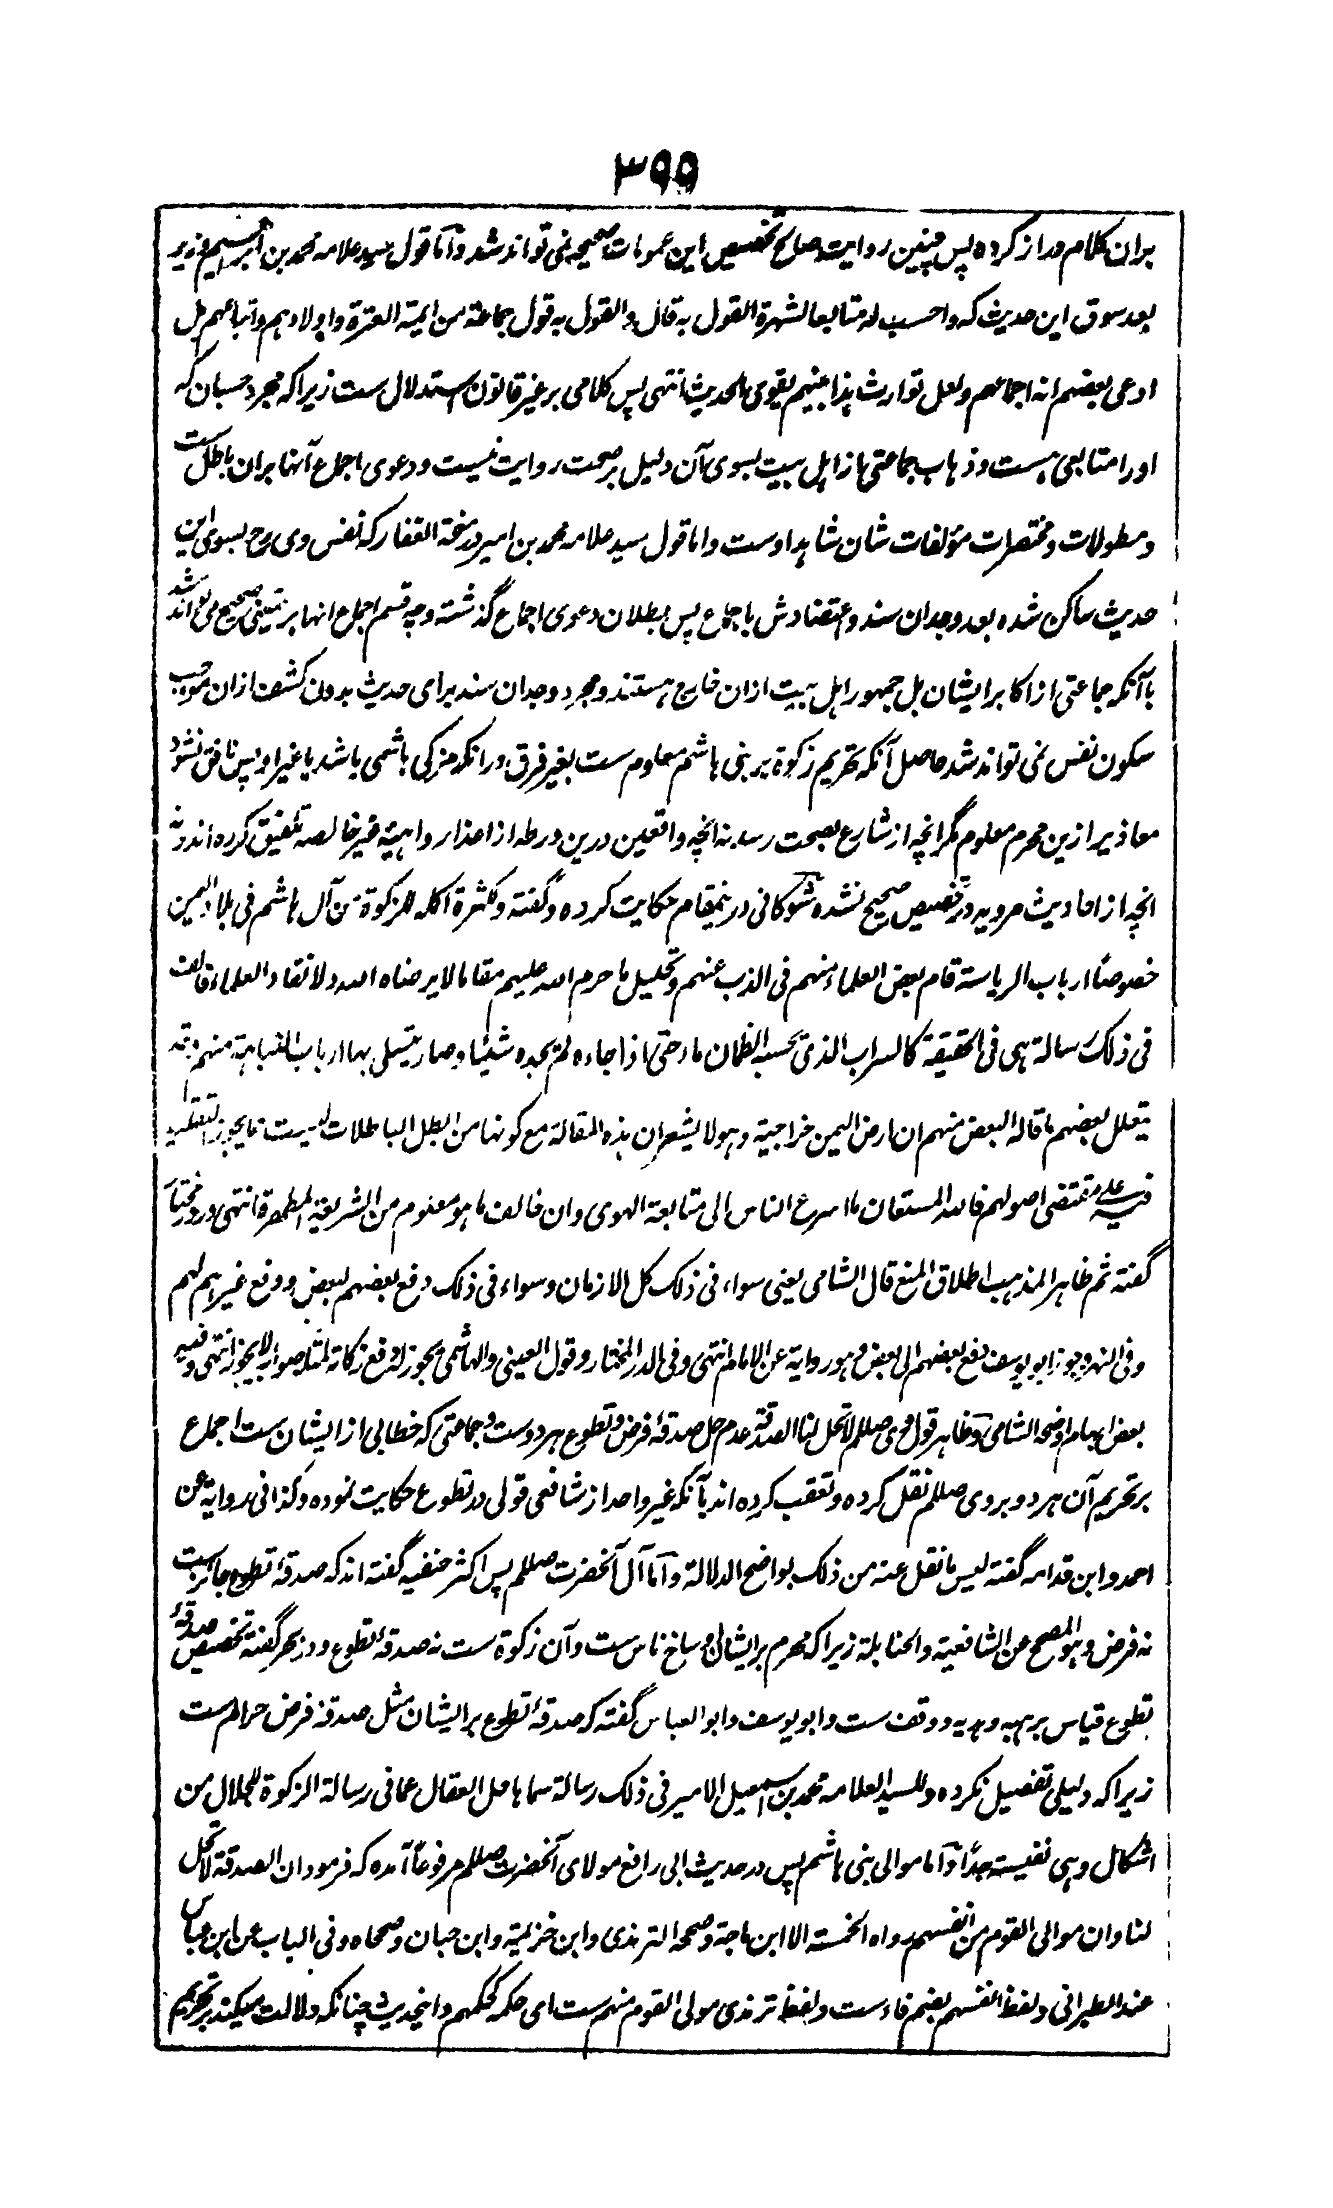 ۳۹۹
بران کلام دراز کرده پس چنین روایت صالح تخصیص این عمومات صحیحه نمی تواند شد و آما قول سید علامه محمد بن ابراهیم وزیر
بعد سوق این حدیث که واحسب له متابعا لشهرة القول به قال والقول به قول جماعة من ایمة العترة واولادهم واتباعهم بل
ادعی بعضهم انه اجماعهم ولعل توارث هذا بینهم یقوی الحدیث انتهی پس کلامی بر غیر قانون استدلال ست زیرا که مجرد حسبان که
او را متابعی هست وذهاب جماعتی از اهل بیت بسوی آن دلیل بر صحت روایت نیست ودعوی اجماع آنها بران باطل ست
ومطولات ومختصرات مؤلفات شان شاهد اوست واما قول سید علامه محمد بن امیر در منحة الغفار که نفس وی رح بسوی این
حدیث ساکن شده بعد وجدان سند واعتضادش باجماع پس بطلان دعوی اجماع گذشته وچه قسم اجماع انها بر صحیح می تواند شد
باآنکه جماعتی از اکابر ایشان بل جمهور اهل بیت ازان خارج هستند ومجرد وجدان سند برای حدیث بدون کشف ازان موجب
سکون نفس نمی تواند شد حاصل آنکه تحریم زکوة بر بنی هاشم معلوم ست بغیر فرق درانکه مزکی هاشمی باشد یا غیر او پس نافق نشود
معاذیر ازین محرم معلوم مگر انچه از شارع بصحت رسد نه انچه واقعین درین ورطه از اعذار واهیه غیر خالصه تلفیق کرده اند ونه
انچه از احادیث مرویه در تخصیص صحیح نشده شوکانی درینمقام حکایت کرده وگفته ولکثرة اکلة الزکوة من آل هاشم فی بلاد الیمن
خصوصا ارباب الریاسة قام بعض العلماء منهم فی الذب عنهم وتحلیل ما حرم الله علیهم مقاما لا یرضاه الله ولا نقاد العلماء فالف
فی ذلک رسالة هی فی الحقیقة کالسراب الذی یحسبه الظمان ماء حتی اذا جاءه لم یجده شیئا وصار یتسلی بها ارباب النباهة منهم وقد
یتعلل بعضهم ما قاله البعض منهم ان ارض الیمن خراجیة وهو لا یشعر ان هذه المقالة مع کونها من ابطل الباطلات لیست مما یجوز التقلید
فیه علی مقتضی اصولهم فالله المستعان ما اسرع الناس الی متابعة الهوی وان خالف ما هو معلوم من الشریعة المطهرة انتهی ودر مختار
گفته ثم ظاهر المذهب اطلاق المنع قال الشامی یعنی سواء فی ذلک کل الازمان وسواء فی ذلک دفع بعضهم لبعض ودفع غیرهم لهم
وفی النهر وجوز ابو یوسف دفع بعضهم الی بعض وهو روایة عن الامام انتهی وفی الدر المختار وقول العینی والهاشمی یجوز له دفع زکاته لمثله صوابه لا یجوز انتهی وفیه
بعض ایهام اوضحه الشامی وظاهر قول وی صللم لا تحل لنا الصدقة عدم حل صدقهٔ فرض وتطوع هر دوست وجماعتی که خطابی از ایشان ست اجماع
بر تحریم آن هر دو بر وی صللم نقل کرده وتعقب کرده اند بآنکه غیر واحد از شافعی قولی در تطوع حکایت نموده وکذا فی روایة عن
احمد وابن قدامه گفته لیس ما نقل عنه من ذلک بواضح الدلالة وآما آل آنحضرت صللم پس اکثر حنفیه گفته اند که صدقهٔ تطوع جائز ست
نه فرض وهو المصحح عن الشافعیة والحنابلة زیرا که محرم بر ایشان اوساخ ناس ست وآن زکوة ست نه صدقهٔ تطوع ودر بحر گفته تخصیص صدقهٔ
تطوع قیاس بر هبه وهدیه ووقف ست وابو یوسف وابو العباس گفته که صدقهٔ تطوع بر ایشان مثل صدقهٔ فرض حرام ست
زیرا که دلیلی تفصیل نکرده وللسید العلامة محمد بن اسمعیل الامیر فی ذلک رسالة سماها حل العقال عما فی رسالة الزکوة للجلال من
اشکال وهی نفیسة جدا وآما موالی بنی هاشم پس در حدیث ابی رافع مولای آنحضرت صللم مرفوعا آمده که فرمود ان الصدقة لا تحل
لنا وان موالی القوم من انفسهم رواه الخمسة الا ابن ماجة وصححه الترمذی وابن خزیمة وابن حبان وصححاه وفی الباب عن ابن عباس
عند الطبرانی ولفظ انفسهم بضم فاء ست ولفظ ترمذی مولی القوم منهم ست ای حکمه کحکمهم واینحدیث چنانکه دلالت میکند بر تحریم